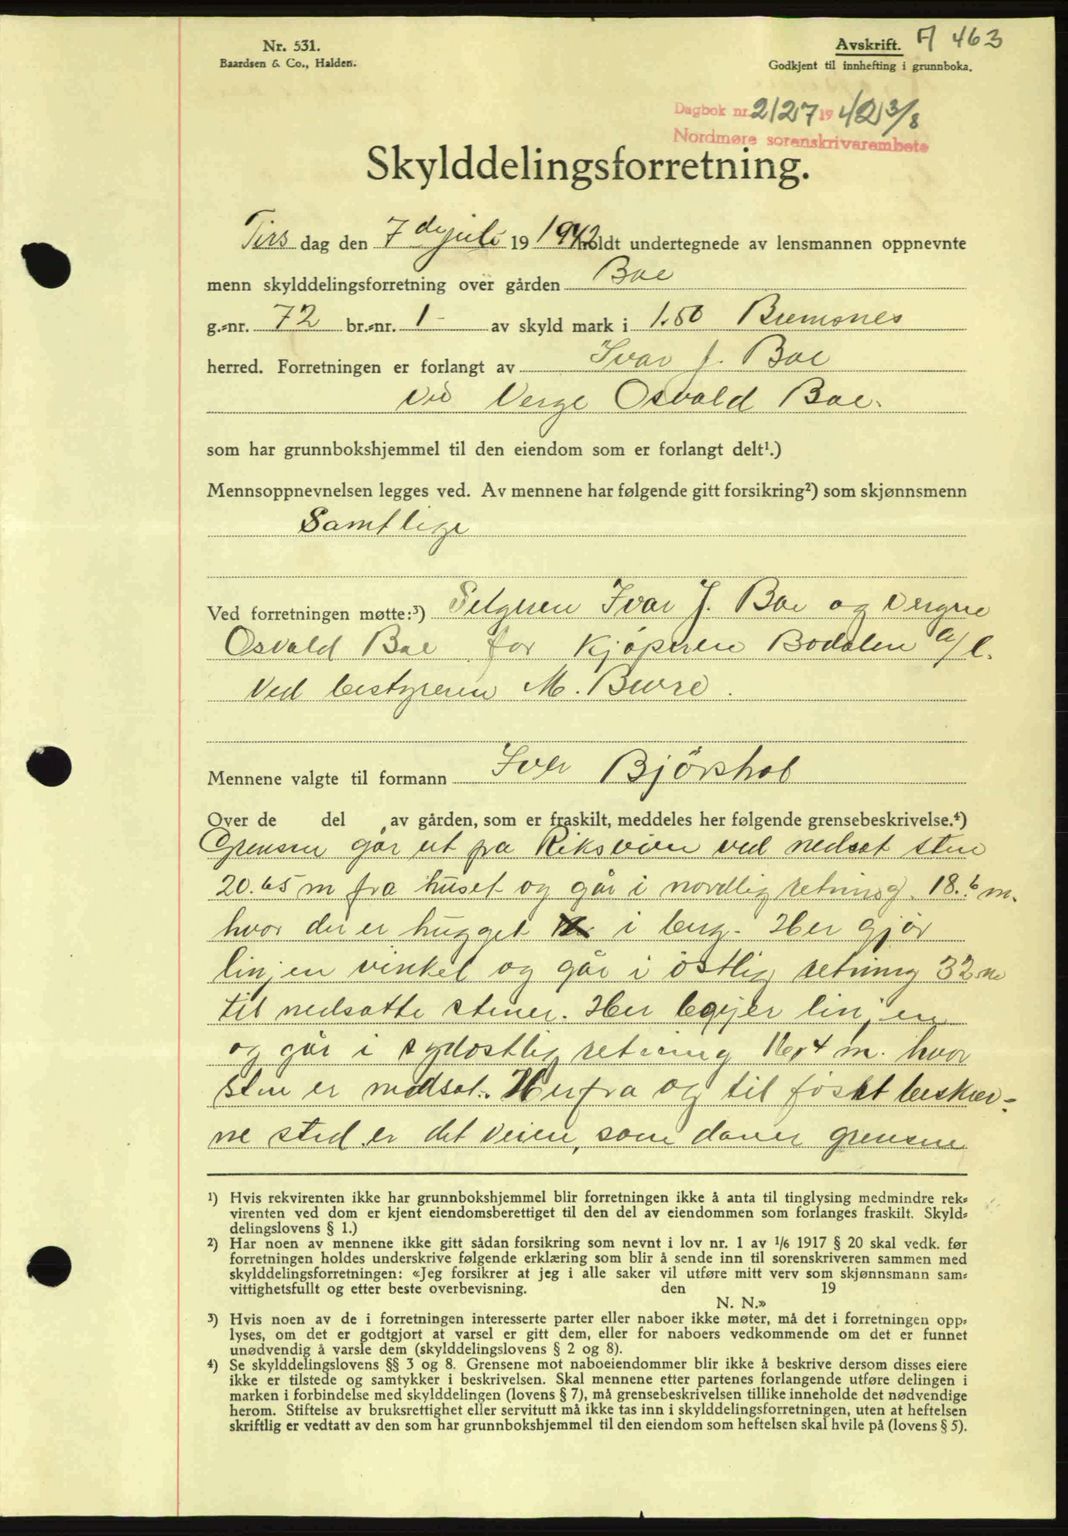 Nr. 531.
Baardsen & Co., Halden.
Avskrift. A 463
Godkjent til innhefting i grunnboka.
Dagbok nr. 2127 1942 3/8
Nordmøre sorenskrivarembete
Skylddelingsforretning.
Tirs dag den 7 de juli 19 1942 holdt undertegnede av lensmannen oppnevnte
menn skylddelingsforretning over gården Boe
g.-nr. 72 br.-nr. 1 av skyld mark i 1.50 Bremsnes
herred. Forretningen er forlangt av Ivar J. Boe
ved Verge Osvald Boe.
som har grunnbokshjemmel til den eiendom som er forlangt delt¹.)
Mennsoppnevnelsen legges ved. Av mennene har følgende gitt forsikring²) som skjønnsmenn
Samtlige
Ved forretningen møtte:³) Selgeren Ivar J. Boe og vergne
Osvald Boe for kjøperen Bodalen a/l.
ved bestyreren M.
Mennene valgte til formann Iver
Over de del av gården, som er fraskilt, meddeles her følgende grensebeskrivelse.⁴)
Grensen går ut fra Riksveien ved nedsat sten
20.65 m fra huset og går i nordlig retning 18.6 m.
hvor der er hugget i berg. Her gjør
linjen vinkel og går i östlig retning 32 m
til nedsatte stener. Her bøyer linjen
og går i sydostlig retning 16,4 m. hvor
sten er nedsat. Herfra og til først beskrev-
ne sted er det veien, som daner grensen
¹) Hvis rekvirenten ikke har grunnbokshjemmel blir forretningen ikke å anta til tinglysing medmindre rek-
virenten ved dom er kjent eiendomsberettiget til den del av eiendommen som forlanges fraskilt. Skyld-
delingslovens § 1.)
²) Har noen av mennene ikke gitt sådan forsikring som nevnt i lov nr. 1 av 1/6 1917 § 20 skal vedk. før
forretningen holdes underskrive følgende erklæring som blir å sende inn til sorenskriveren sammen med
skylddelingsforretningen: «Jeg forsikrer at jeg i alle saker vil utføre mitt verv som skjønnsmann sam-
vittighetsfullt og etter beste overbevisning. den 19
N. N.»
³) Hvis noen av de i forretningen interesserte parter eller naboer ikke møter, må det i forretningen opp-
lyses, om det er godtgjort at varsel er gitt dem, eller for naboers vedkommende om det er funnet
unødvendig å varsle dem (skylddelingslovens § 2 og 8).
⁴) Se skylddelingslovens §§ 3 og 8. Grensene mot naboeiendommer blir ikke å beskrive dersom disses eiere
ikke er tilstede og samtykker i beskrivelsen. Skal mennene etter partenes forlangende utføre delingen i
marken i forbindelse med skylddelingen (lovens § 7), må grensebeskrivelsen tillike inneholde det nødvendige
herom. Stiftelse av bruksrettighet eller servitutt må ikke tas inn i skylddelingsforretningen, uten at heftelsen
skriftlig er vedtatt av den som har grunnbokshjemmel til den eiendom som heftelsen skal hvile på (lovens § 5).